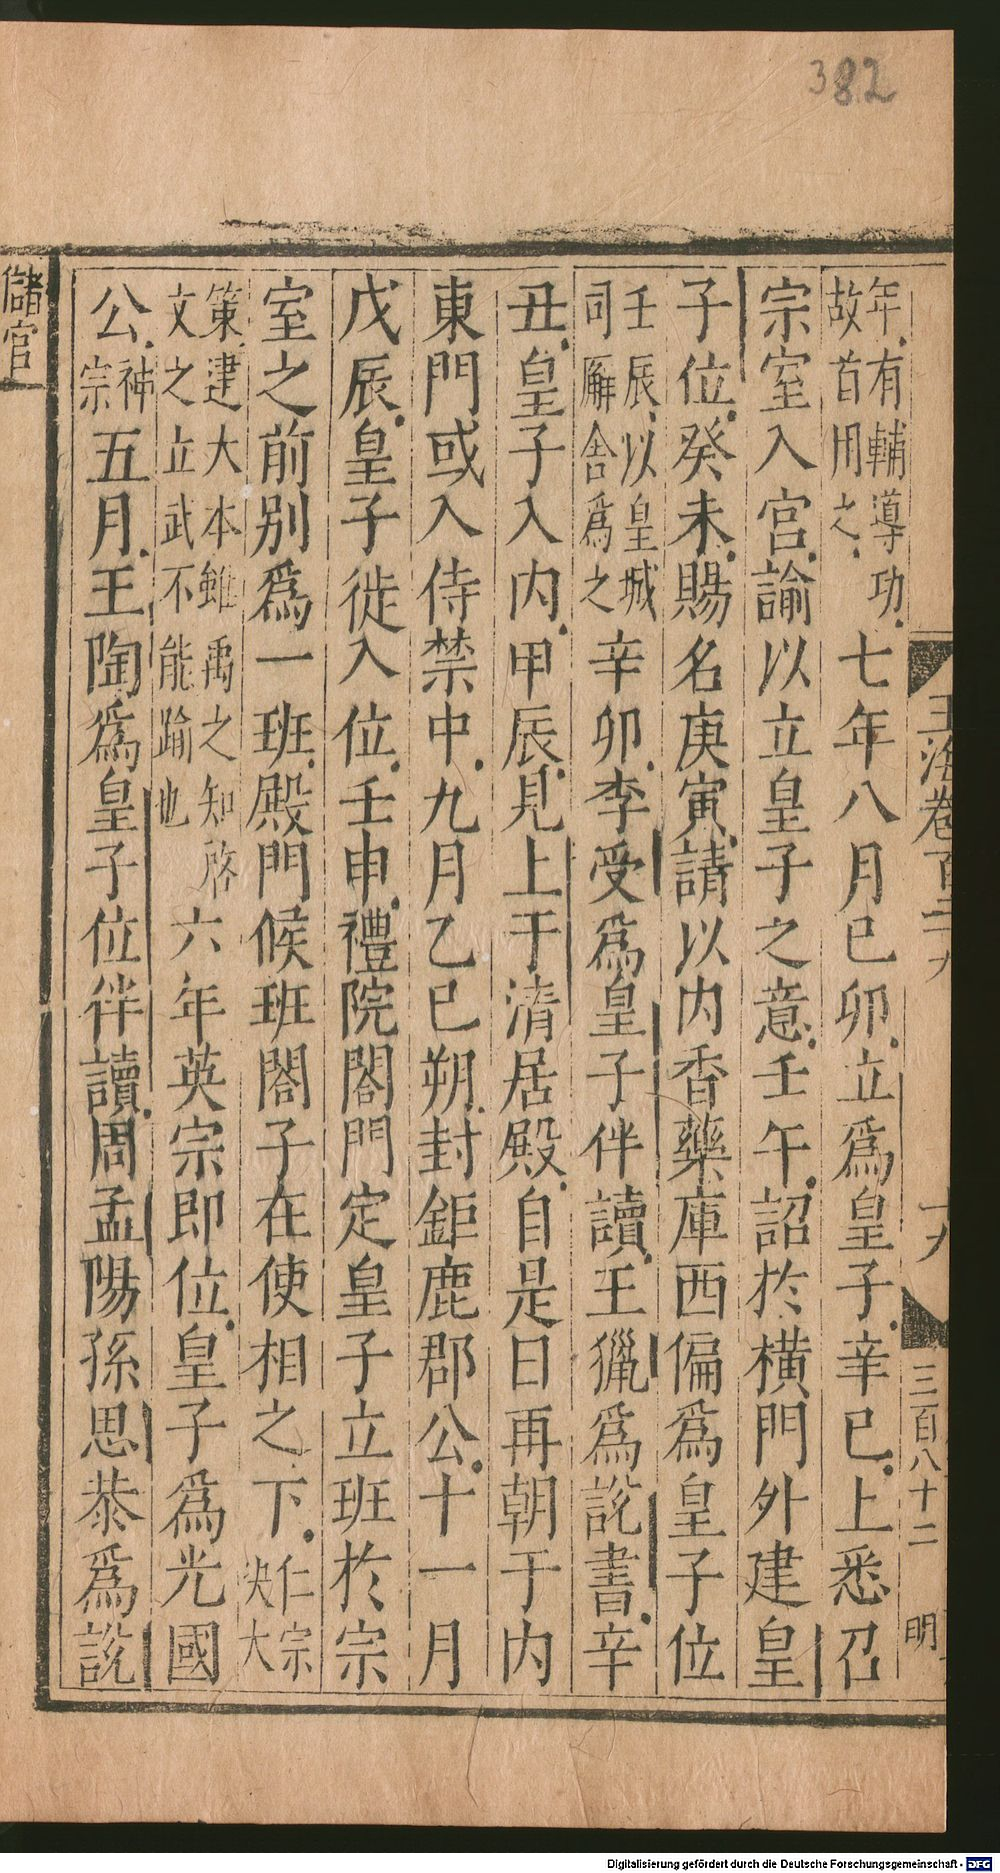 382
年有輔導功
故首用之
七年八月已卯立爲皇子辛已上悉召
宗室入宫諭以立皇子之意壬午詔於横門外建皇
子位癸未賜名庚寅請以内香藥庫西偏爲皇子位
壬辰以皇城
司廨舍爲之
辛卯李受爲皇子伴讀王獵爲說書辛
丑皇子入内甲辰見上于清居殿自是日再朝于内
東門或入侍禁中九月乙已朔封鉅鹿郡公十一月
戊辰皇子徙入位壬申禮院閤門定皇子立班於宗
室之前别爲一班殿門候班閤子在使相之下
仁宗
決大
策建大本雖禹之知啓
文之立武不能踰也
六年英宗即位皇子爲光國
公
神
宗
五月王陶爲皇子位伴讀周孟陽孫思恭爲說
儲宫
玉海卷百二九
十九
三百八十二
明
Digitalisierung gefördert durch die Deutsche Forschungsgemeinschaft - DFG